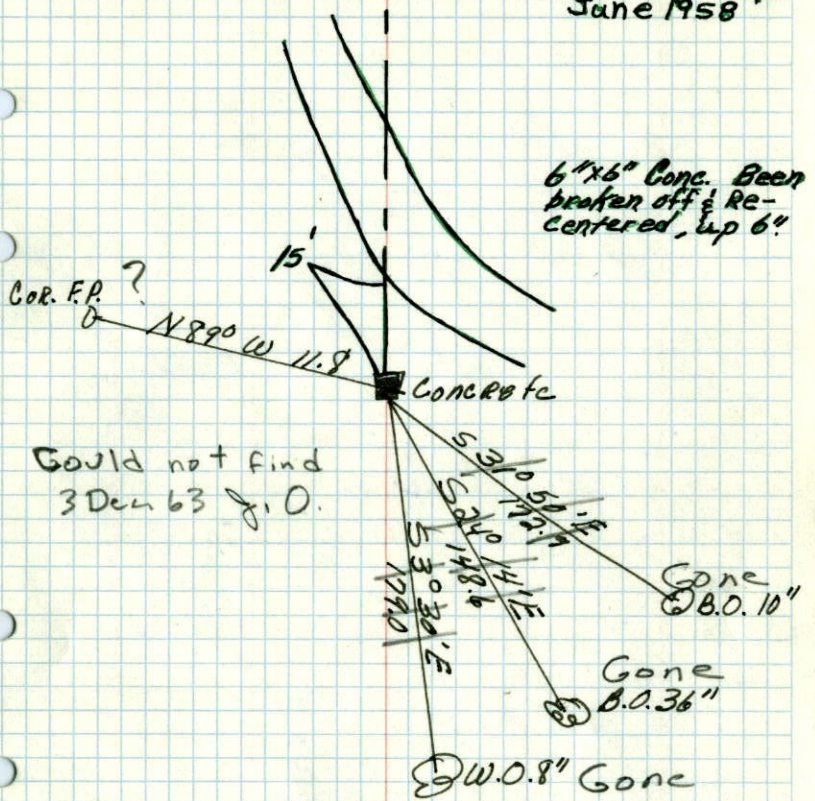 June 1958
6"x6" Conc. Been
broken off & Re-
centered, up 6".
15'
Cor. F.P. ?
N 89° W 11.8'
Concrete
Could not find
3 Dec 63 J.O.
S 31° 50' E
172.7
S 24° 14' E
148.6
S 3° 30' E
179.0
Gone
B.O. 10"
Gone
B.O. 36"
W.O. 8" Gone